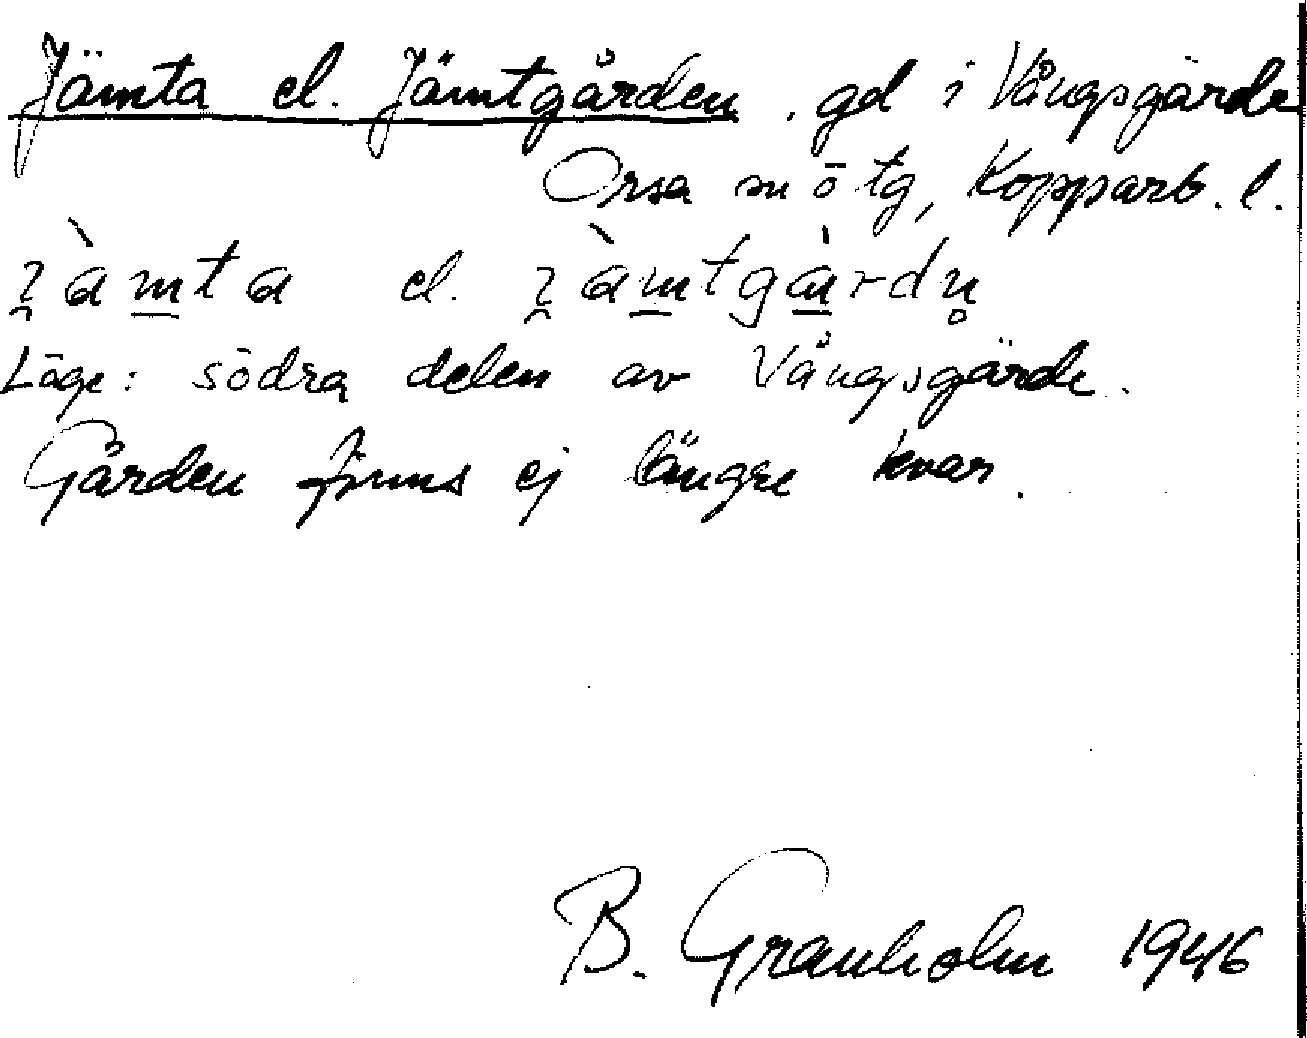 Jämta el. Jämtgården, gd i Vångsgärde
Orsa sn ö tg, Kopparb. l.
el.
Läge: södra delen av Vångsgärde.
Gården finns ej längre kvar.
B. Granholm 1946